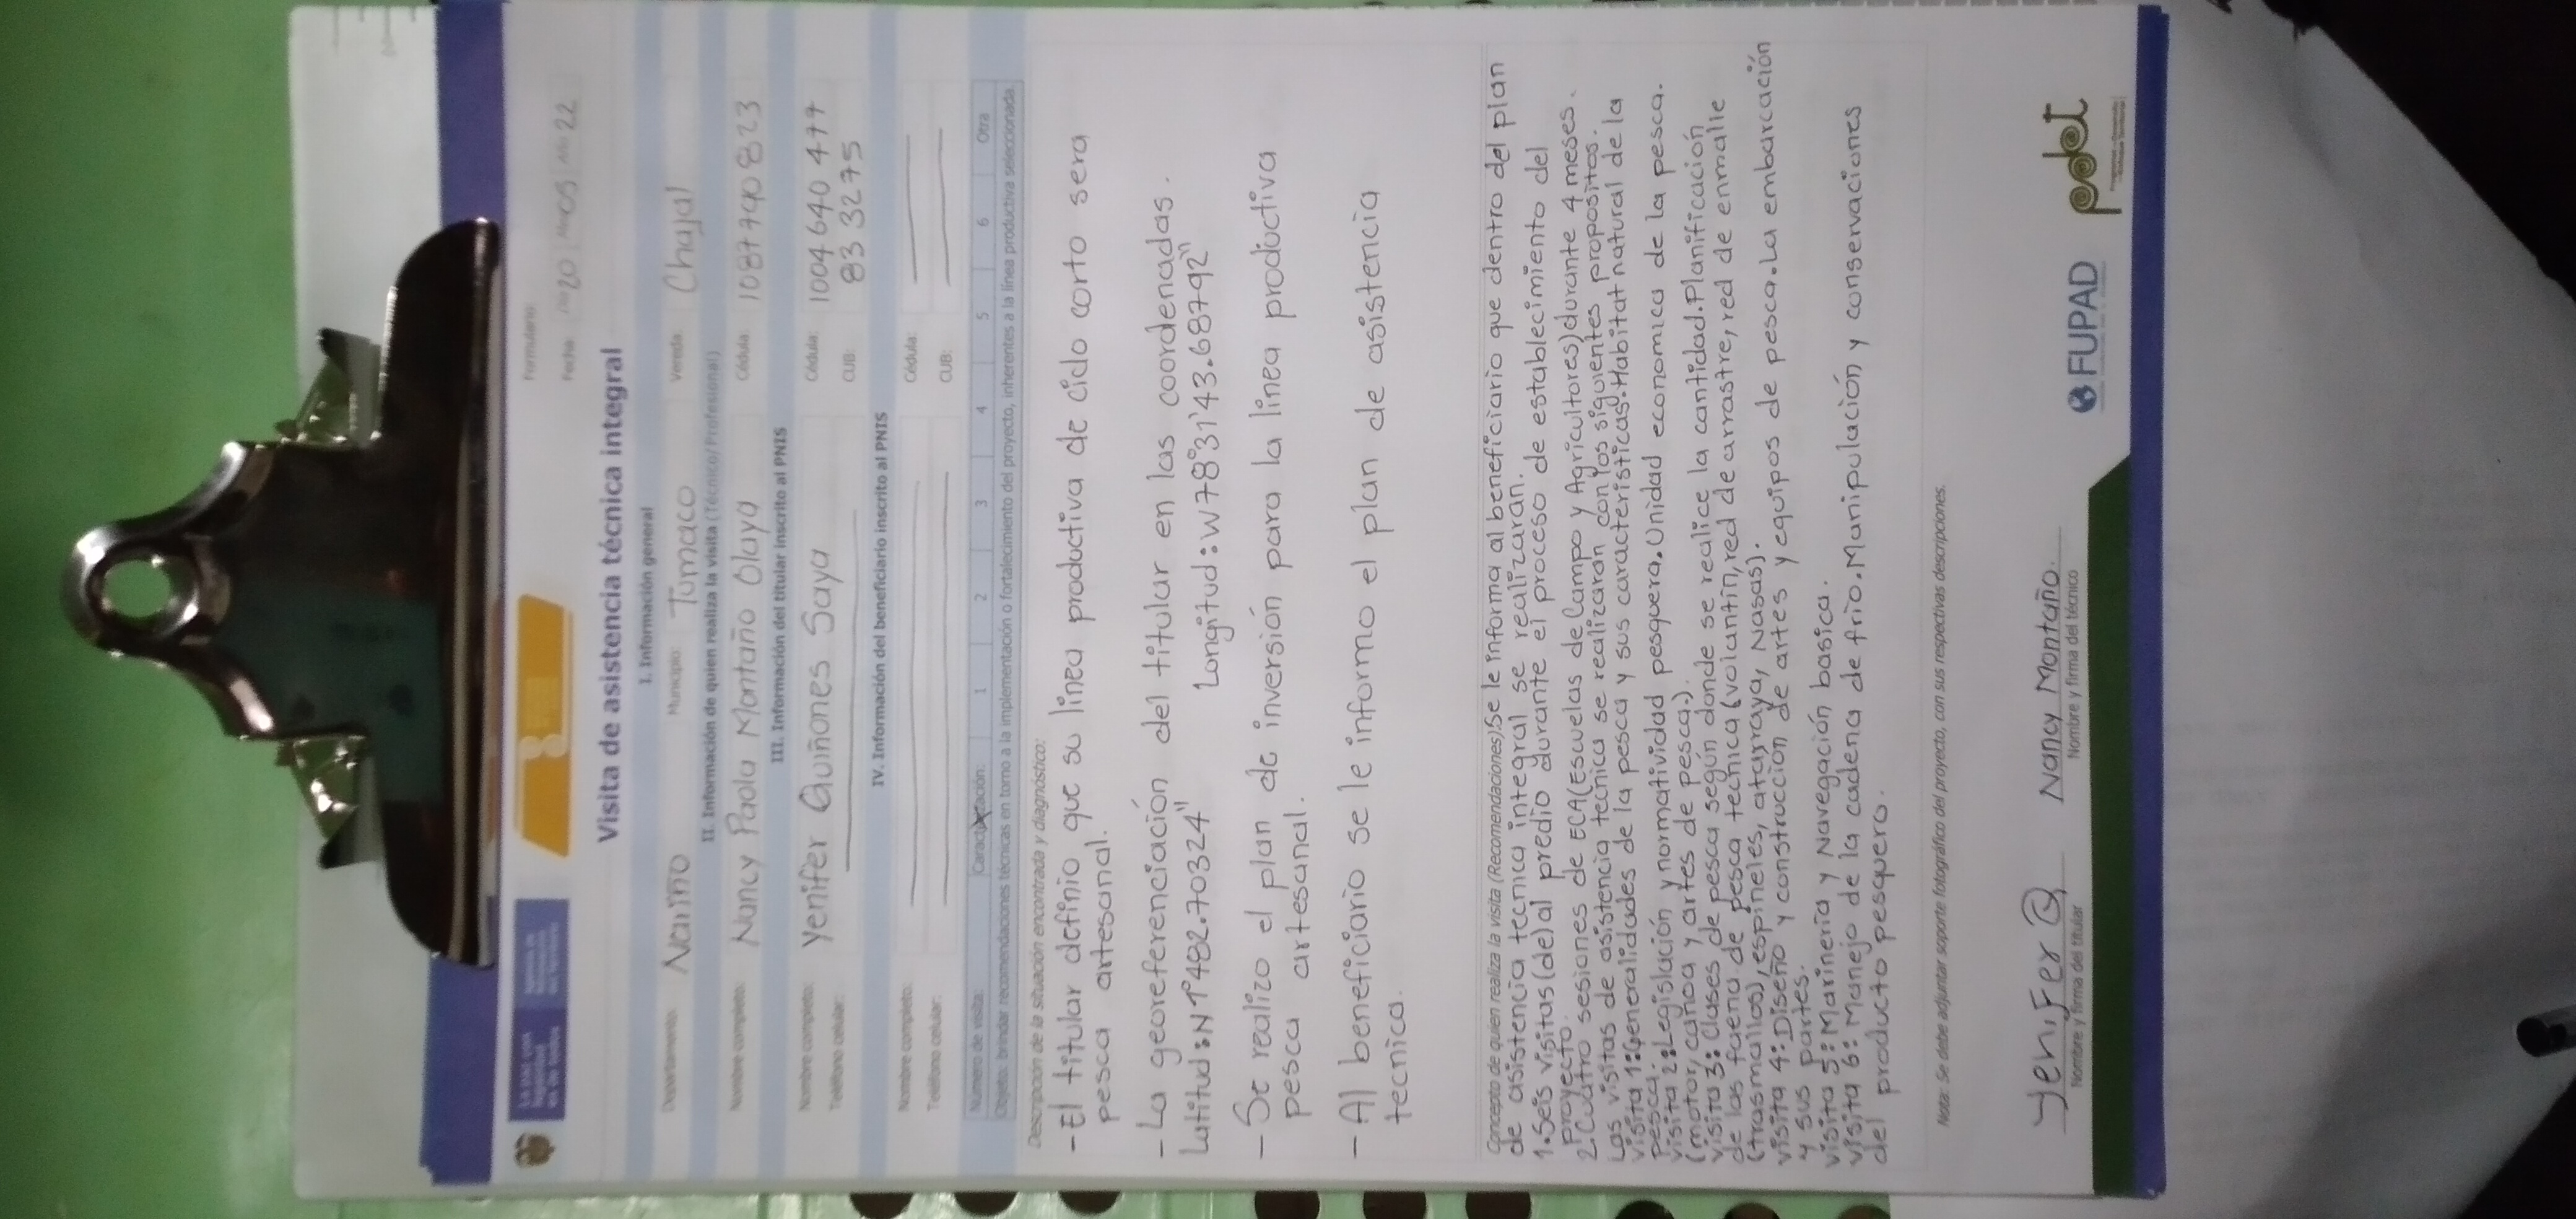 Formulario:
Fecha: Día 20 Mes 05 Año 22
Visita de asistencia técnica integral
I. Información general
Departamento: Nariño Municipio: Tumaco Vereda: Chajal
II. Información de quien realiza la visita (Técnico/Profesional)
Nombre completo: Nancy Paola Montaño Olaya Cédula: 1087790823
III. Información del titular inscrito al PNIS
Nombre completo: Yenifer Quiñones Saya Cédula: 1004640477
Teléfono celular: CUB: 8333275
IV. Información del beneficiario inscrito al PNIS
Nombre completo: Cédula:
Teléfono celular: CUB:
Número de visita: Caracterización: 1 2 3 4 5 6 Otra
Objeto: brindar recomendaciones técnicas en torno a la implementación o fortalecimiento del proyecto, inherentes a la línea productiva seleccionada.
Descripción de la situación encontrada y diagnóstico:
-El titular definio que su linea productiva de ciclo corto sera
pesca artesanal.
-La georeferenciación del titular en las coordenadas.
Latitud:N1°482.70324" Longitud:W78°31'43.68792"
-Se realizo el plan de inversión para la linea productiva
pesca artesanal.
-Al beneficiario se le informo el plan de asistencia
tecnica.
Concepto de quien realiza la visita (Recomendaciones):Se le informa al beneficiario que dentro del plan
de asistencia tecnica integral se realizaran.
1.Seis visitas(de)al predio durante el proceso de establecimiento del
proyecto.
2.Cuatro sesiones de ECA(Escuelas de Campo y Agricultores)durante 4 meses.
Las visitas de asistencia tecnica se realizaran con los siguientes propositos.
visita 1:Generalidades de la pesca y sus caracteristicas.Habitat natural de la
pesca.
visita 2:Legislación y normatividad pesquera.Unidad economica de la pesca.
(motor, canoa y artes de pesca.).
visita 3:Clases de pesca según donde se realice la cantidad.Planificación
de las faena de pesca tecnica(volantin,red de arrastre,red de enmalle
(trasmallos),espineles, atarraya, Nasas).
visita 4:Diseño y construccion de artes y equipos de pesca.La embarcación
y sus partes.
visita 5:Marineria y Navegación basica.
visita 6:Manejo de la cadena de frio.Manipulación y conservaciones
del producto pesquero.
Nota: Se debe adjuntar soporte fotográfico del proyecto, con sus respectivas descripciones.
Yenifer Q Nancy Montaño.
Nombre y firma del titular Nombre y firma del técnico
FUPAD pdet